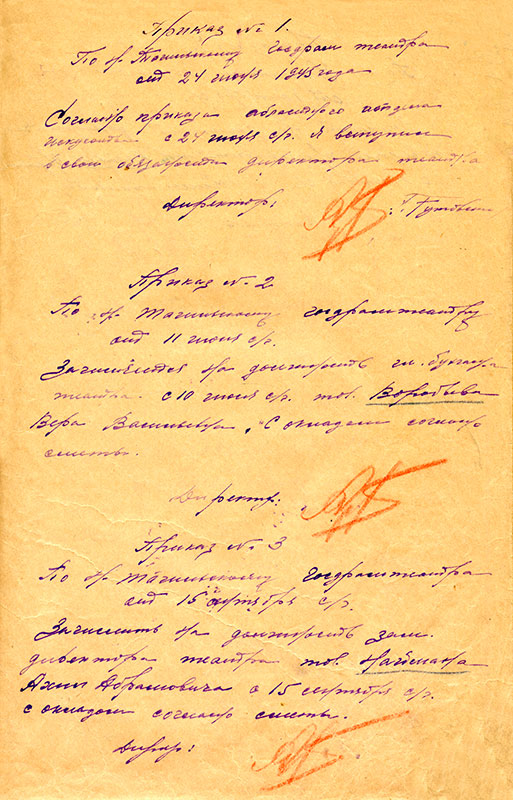 Приказ № 1.
По Н. Тагильскому Госдрам театра
от 24 июня 1945 года
Согласно приказа областного отдела
искусств с 24 июня с/г. Я вступил
в свои обязанности директора театра
Директор:
Приказ № 2
По Н. Тагильскому Госдрамтеатру
от 11 июня с/г.
Зачисляется на должность гл. бухгалтера
театра с 10 июня с/г. тов. Воробьева
Вера Васильевна, с окладом согласно
сметы.
Директор:
Приказ № 3
По Н. Тагильскому Госдрамтеатра
от 15 сентября с/г.
Зачислить на должность зам.
директора театра тов. Наймана
Абрамовича с 15 сентября с/г.
с окладом согласно сметы.